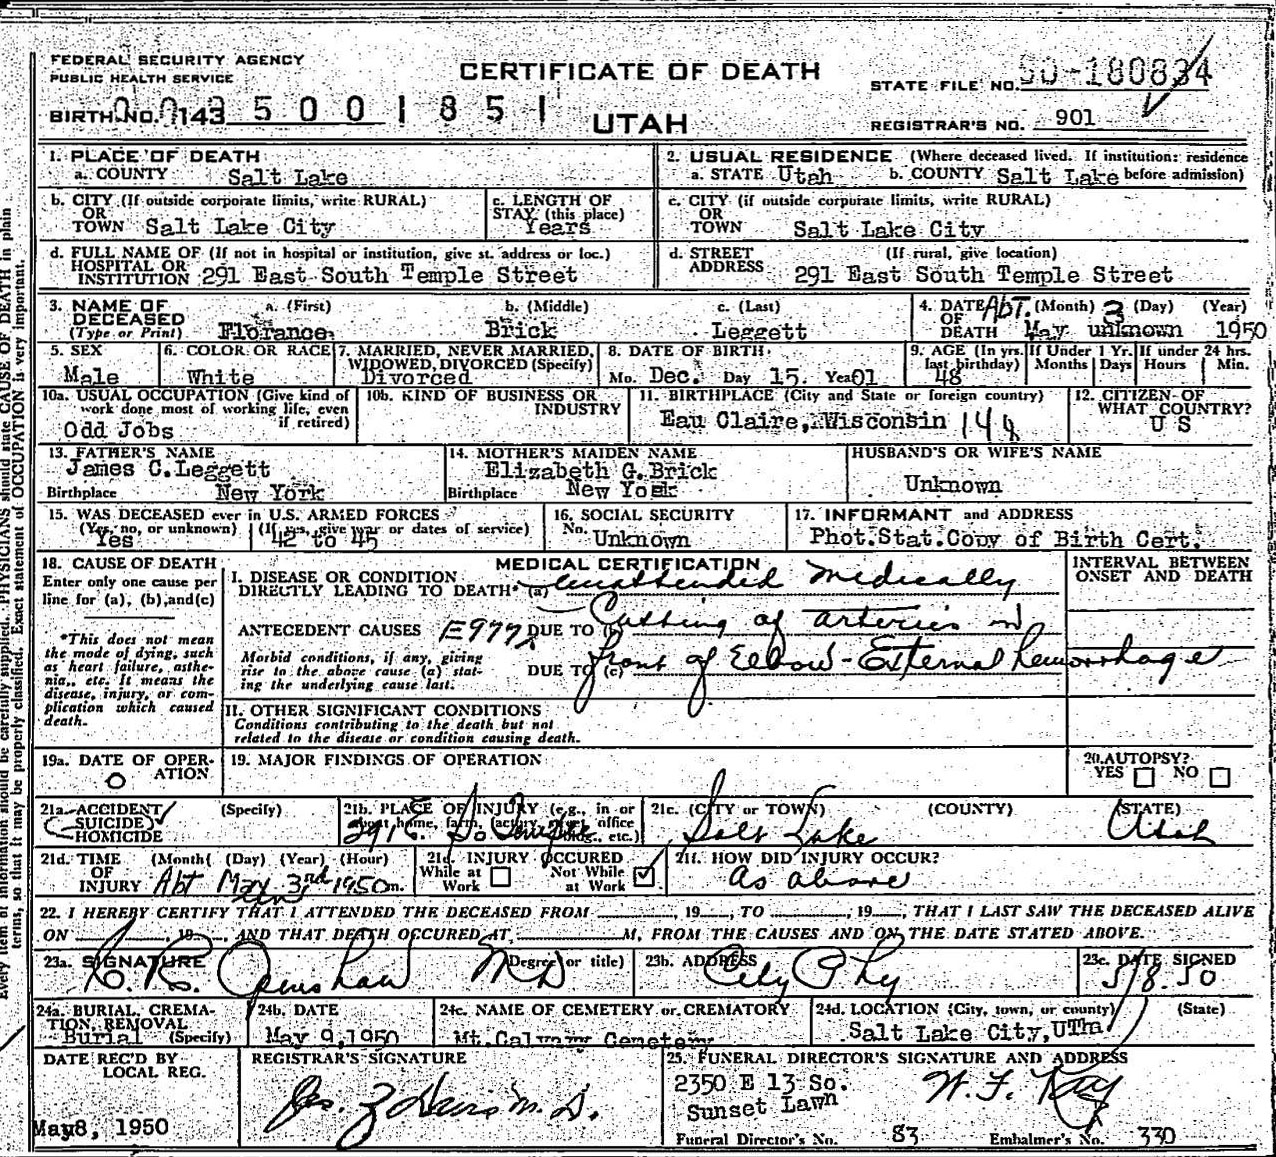 FEDERAL SECURITY AGENCY
PUBLIC HEALTH SERVICE
CERTIFICATE OF DEATH
UTAH
STATE FILE NO. 50-180834
BIRTH NO. 143 5 0 0 1 8 5 1
REGISTRAR'S NO. 901
1. PLACE OF DEATH
a. COUNTY Salt Lake
2. USUAL RESIDENCE (Where deceased lived. If institution: residence before admission)
a. STATE Utah b. COUNTY Salt Lake
b. CITY (If outside corporate limits, write RURAL)
OR
TOWN Salt Lake City
c. LENGTH OF
STAY (this place)
Years
c. CITY (if outside corporate limits, write RURAL)
OR
TOWN Salt Lake City
d. FULL NAME OF (If not in hospital or institution, give st. address or loc.)
HOSPITAL OR
INSTITUTION 291 East South Temple Street
d. STREET (If rural, give location)
ADDRESS 291 East South Temple Street
3. NAME OF a. (First) b. (Middle) c. (Last)
DECEASED
(Type or Print) Florance Brick Leggett
4. DATE Abt. (Month) 3 (Day) (Year)
OF
DEATH May unknown 1950
5. SEX
Male
6. COLOR OR RACE
White
7. MARRIED, NEVER MARRIED,
WIDOWED, DIVORCED (Specify)
Divorced
8. DATE OF BIRTH
Mo. Dec. Day 15. Yea01
9. AGE (In yrs.
last birthday)
48
If Under 1 Yr.
Months Days
If under 24 hrs.
Hours Min.
10a. USUAL OCCUPATION (Give kind of
work done most of working life, even
if retired)
Odd Jobs
10b. KIND OF BUSINESS OR
INDUSTRY
11. BIRTHPLACE (City and State or foreign country)
Eau Claire, Wisconsin
12. CITIZEN OF
WHAT COUNTRY?
U S
13. FATHER'S NAME
James C. Leggett
Birthplace New York
14. MOTHER'S MAIDEN NAME
Elizabeth G. Brick
Birthplace New York
HUSBAND'S OR WIFE'S NAME
Unknown
15. WAS DECEASED ever in U.S. ARMED FORCES
(Yes, no, or unknown) (If yes, give war or dates of service)
Yes 42 to 45
16. SOCIAL SECURITY
No. Unknown
17. INFORMANT and ADDRESS
Phot.Stat.Copy of Birth Cert.
18. CAUSE OF DEATH
Enter only one cause per
line for (a), (b), and (c)
*This does not mean
the mode of dying, such
as heart failure, asthe-
nia, etc. It means the
disease, injury, or com-
plication which caused
death.
MEDICAL CERTIFICATION
I. DISEASE OR CONDITION
DIRECTLY LEADING TO DEATH* (a) unattended medically
ANTECEDENT CAUSES E977x DUE TO (b) Cutting of arteries in
Morbid conditions, if any, giving
rise to the above cause (a) stat-
ing the underlying cause last.
DUE TO (c) front of Elbow - External hemorrhage
INTERVAL BETWEEN
ONSET AND DEATH
II. OTHER SIGNIFICANT CONDITIONS
Conditions contributing to the death but not
related to the disease or condition causing death.
19a. DATE OF OPER-
ATION
O
19. MAJOR FINDINGS OF OPERATION
20. AUTOPSY?
YES NO
21a. ACCIDENT (Specify)
SUICIDE
HOMICIDE
21b. PLACE OF INJURY (e.g., in or
about home, farm, factory, street, office
bldg., etc.)
291 E. So Temple
21c. (CITY or TOWN) (COUNTY) (STATE)
Salt Lake Utah
21d. TIME (Month) (Day) (Year) (Hour)
OF
INJURY Abt May 3rd 1950 m.
21d. INJURY OCCURED
While at Work Not While at Work
21f. HOW DID INJURY OCCUR?
As above
22. I HEREBY CERTIFY THAT I ATTENDED THE DECEASED FROM , 19 , TO , 19 , THAT I LAST SAW THE DECEASED ALIVE
ON , 19 , AND THAT DEATH OCCURED AT M, FROM THE CAUSES AND ON THE DATE STATED ABOVE.
23a. SIGNATURE (Degree or title)
MD
23b. ADDRESS
City Phy
23c. DATE SIGNED
5/8.50
24a. BURIAL, CREMA-
TION, REMOVAL
Burial (Specify)
24b. DATE
May 9, 1950
24c. NAME OF CEMETERY or CREMATORY
Mt. Calvary Cemetery
24d. LOCATION (City, town, or county) (State)
Salt Lake City, UTm
DATE REC'D BY
LOCAL REG.
May8, 1950
REGISTRAR'S SIGNATURE
M.D.
25. FUNERAL DIRECTOR'S SIGNATURE AND ADDRESS
2350 E 13 So.
Sunset Lawn
W. F. Kay
Funeral Director's No. 83 Embalmer's No. 330
Every item of information should be carefully supplied. PHYSICIANS should state CAUSE OF DEATH in plain
terms, so that it may be properly classified. Exact statement of OCCUPATION is very important.